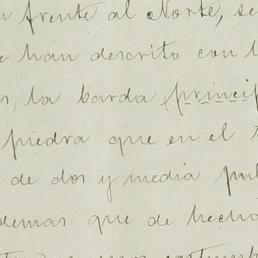 frente al Norte, se
han descrito con l
la barda (princip
piedra que en el
de dos y media pul
demas que de hecho